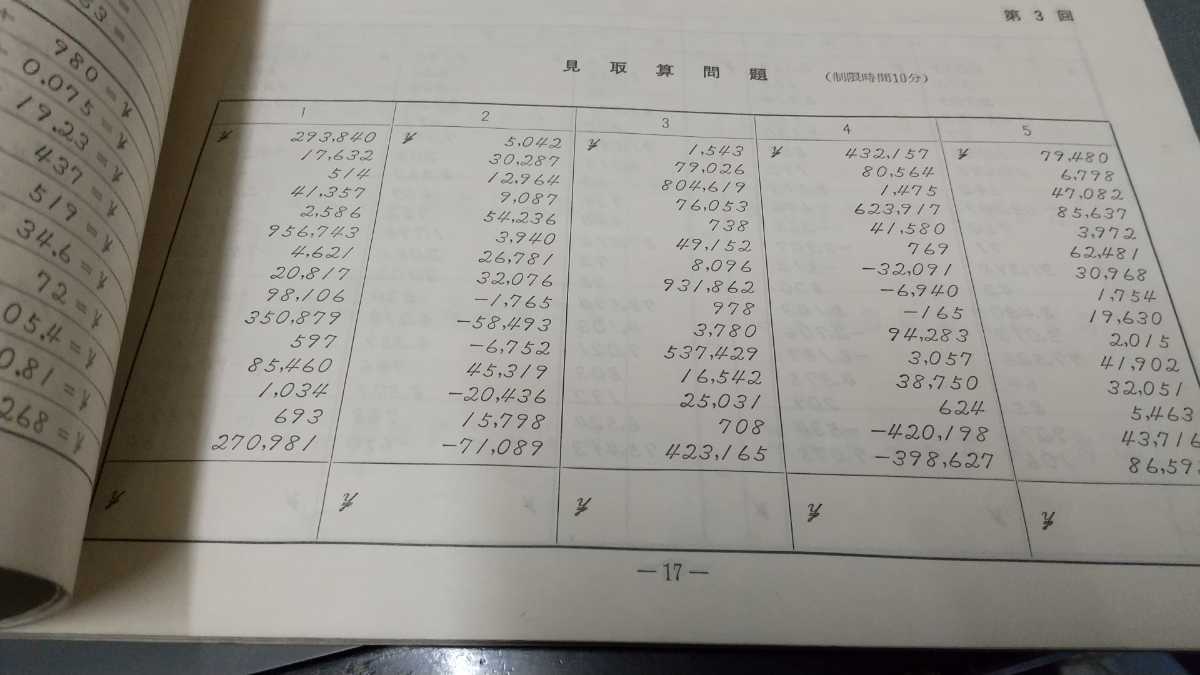 第 3 回
見 取 算 問 題 (制限時間10分)
1 2 3 4 5
¥ 293,840 ¥ 5,042 ¥ 1,543 ¥ 432,157 ¥ 79,480
17,632 30,287 79,026 80,564 6,798
514 12,964 804,619 1,475 47,082
41,357 9,087 76,053 623,917 85,637
2,586 54,236 738 41,580 3,972
956,743 3,940 49,152 769 62,481
4,621 26,781 8,096 -32,091 30,968
20,817 32,076 931,862 -6,940 1,754
98,106 -1,765 978 -165 19,630
350,879 -58,493 3,780 94,283 2,015
597 -6,752 537,429 3,057 41,902
85,460 45,319 16,542 38,750 32,051
1,034 -20,436 25,031 624 5,463
693 15,798 708 -420,198 43,716
270,981 -71,089 423,165 -398,627 86,59
¥ ¥ ¥ ¥ ¥
— 17 —
980 = ¥
0.075 = ¥
19.23 = ¥
437 = ¥
519 = ¥
34.6 = ¥
72 = ¥
05.4 = ¥
0.81 = ¥
268 = ¥